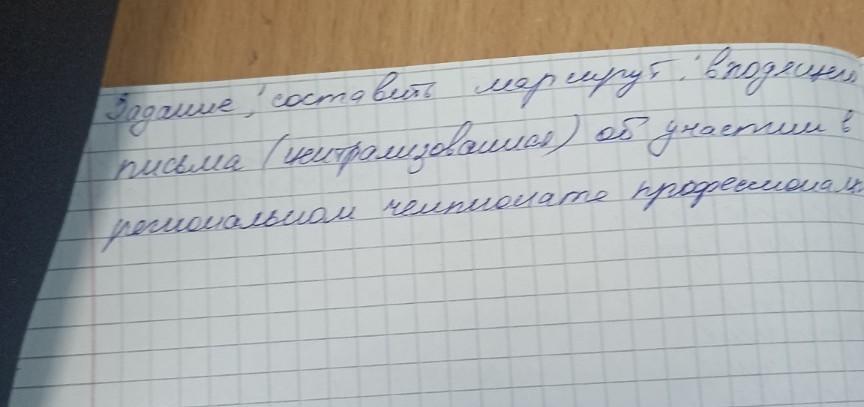 Задание: составить маршрут входящего
письма (централизованная) об участии в
региональном чемпионате профессионалы